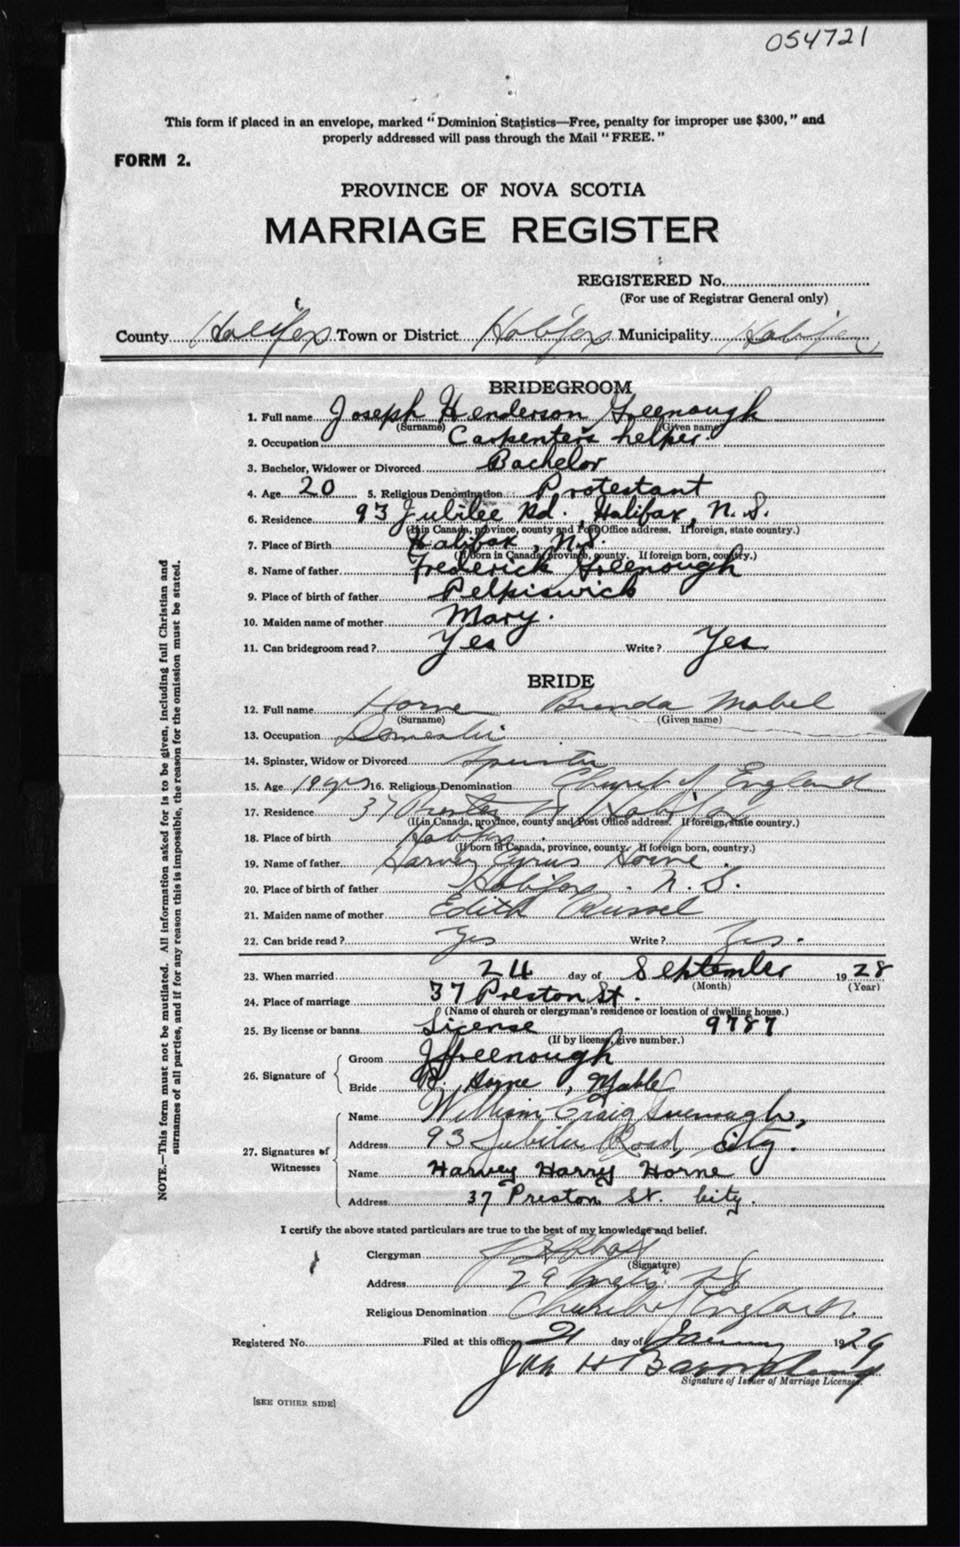 054721
This form if placed in an envelope, marked "Dominion Statistics—Free, penalty for improper use $300," and
properly addressed will pass through the Mail "FREE."
FORM 2.
PROVINCE OF NOVA SCOTIA
MARRIAGE REGISTER
REGISTERED No.
(For use of Registrar General only)
County Halifax Town or District Halifax Municipality Halifax
BRIDEGROOM
1. Full name Joseph Henderson Greenough
(Surname) (Given name)
2. Occupation Carpenters helper.
3. Bachelor, Widower or Divorced Bachelor
4. Age 20 5. Religious Denomination Protestant
6. Residence 93 Jubilee Rd., Halifax, N.S.
(If in Canada, province, county and Post Office address. If foreign, state country.)
7. Place of Birth Halifax, N.S.
(If born in Canada, province, county. If foreign born, country.)
8. Name of father Frederick Greenough
9. Place of birth of father Petpiswick
10. Maiden name of mother Mary.
11. Can bridegroom read? Yes Write? Yes
BRIDE
12. Full name Horne Brenda Mabel
(Surname) (Given name)
13. Occupation Domestic
14. Spinster, Widow or Divorced Spinster
15. Age 19 yrs 16. Religious Denomination Church of England
17. Residence 37 Preston St Halifax
(If in Canada, province, county and Post Office address. If foreign, state country.)
18. Place of birth Halifax
(If born in Canada, province, county. If foreign born, country.)
19. Name of father Harvey Cyrus Horne.
20. Place of birth of father Halifax. N.S.
21. Maiden name of mother Edith Russel
22. Can bride read? Yes Write? Yes.
23. When married 24 day of September 1928
(Month) (Year)
24. Place of marriage 37 Preston St.
(Name of church or clergyman's residence or location of dwelling house.)
25. By license or banns License 9787
(If by license, give number.)
26. Signature of Groom J Greenough
Bride B. Horne, Mable
27. Signatures of Witnesses Name William Craig Greenough,
Address 93 Jubilee Road, City.
Name Harvey Harry Horne
Address 37 Preston St. City.
I certify the above stated particulars are true to the best of my knowledge and belief.
Clergyman
(Signature)
Address 29 Inglis St
Religious Denomination Church of England.
Registered No. Filed at this office 21 day of January 1929
Signature of Issuer of Marriage License.
[SEE OTHER SIDE]
NOTE.—This form must not be mutilated. All information asked for is to be given, including full Christian and
surnames of all parties, and if for any reason this is impossible, the reason for the omission must be stated.